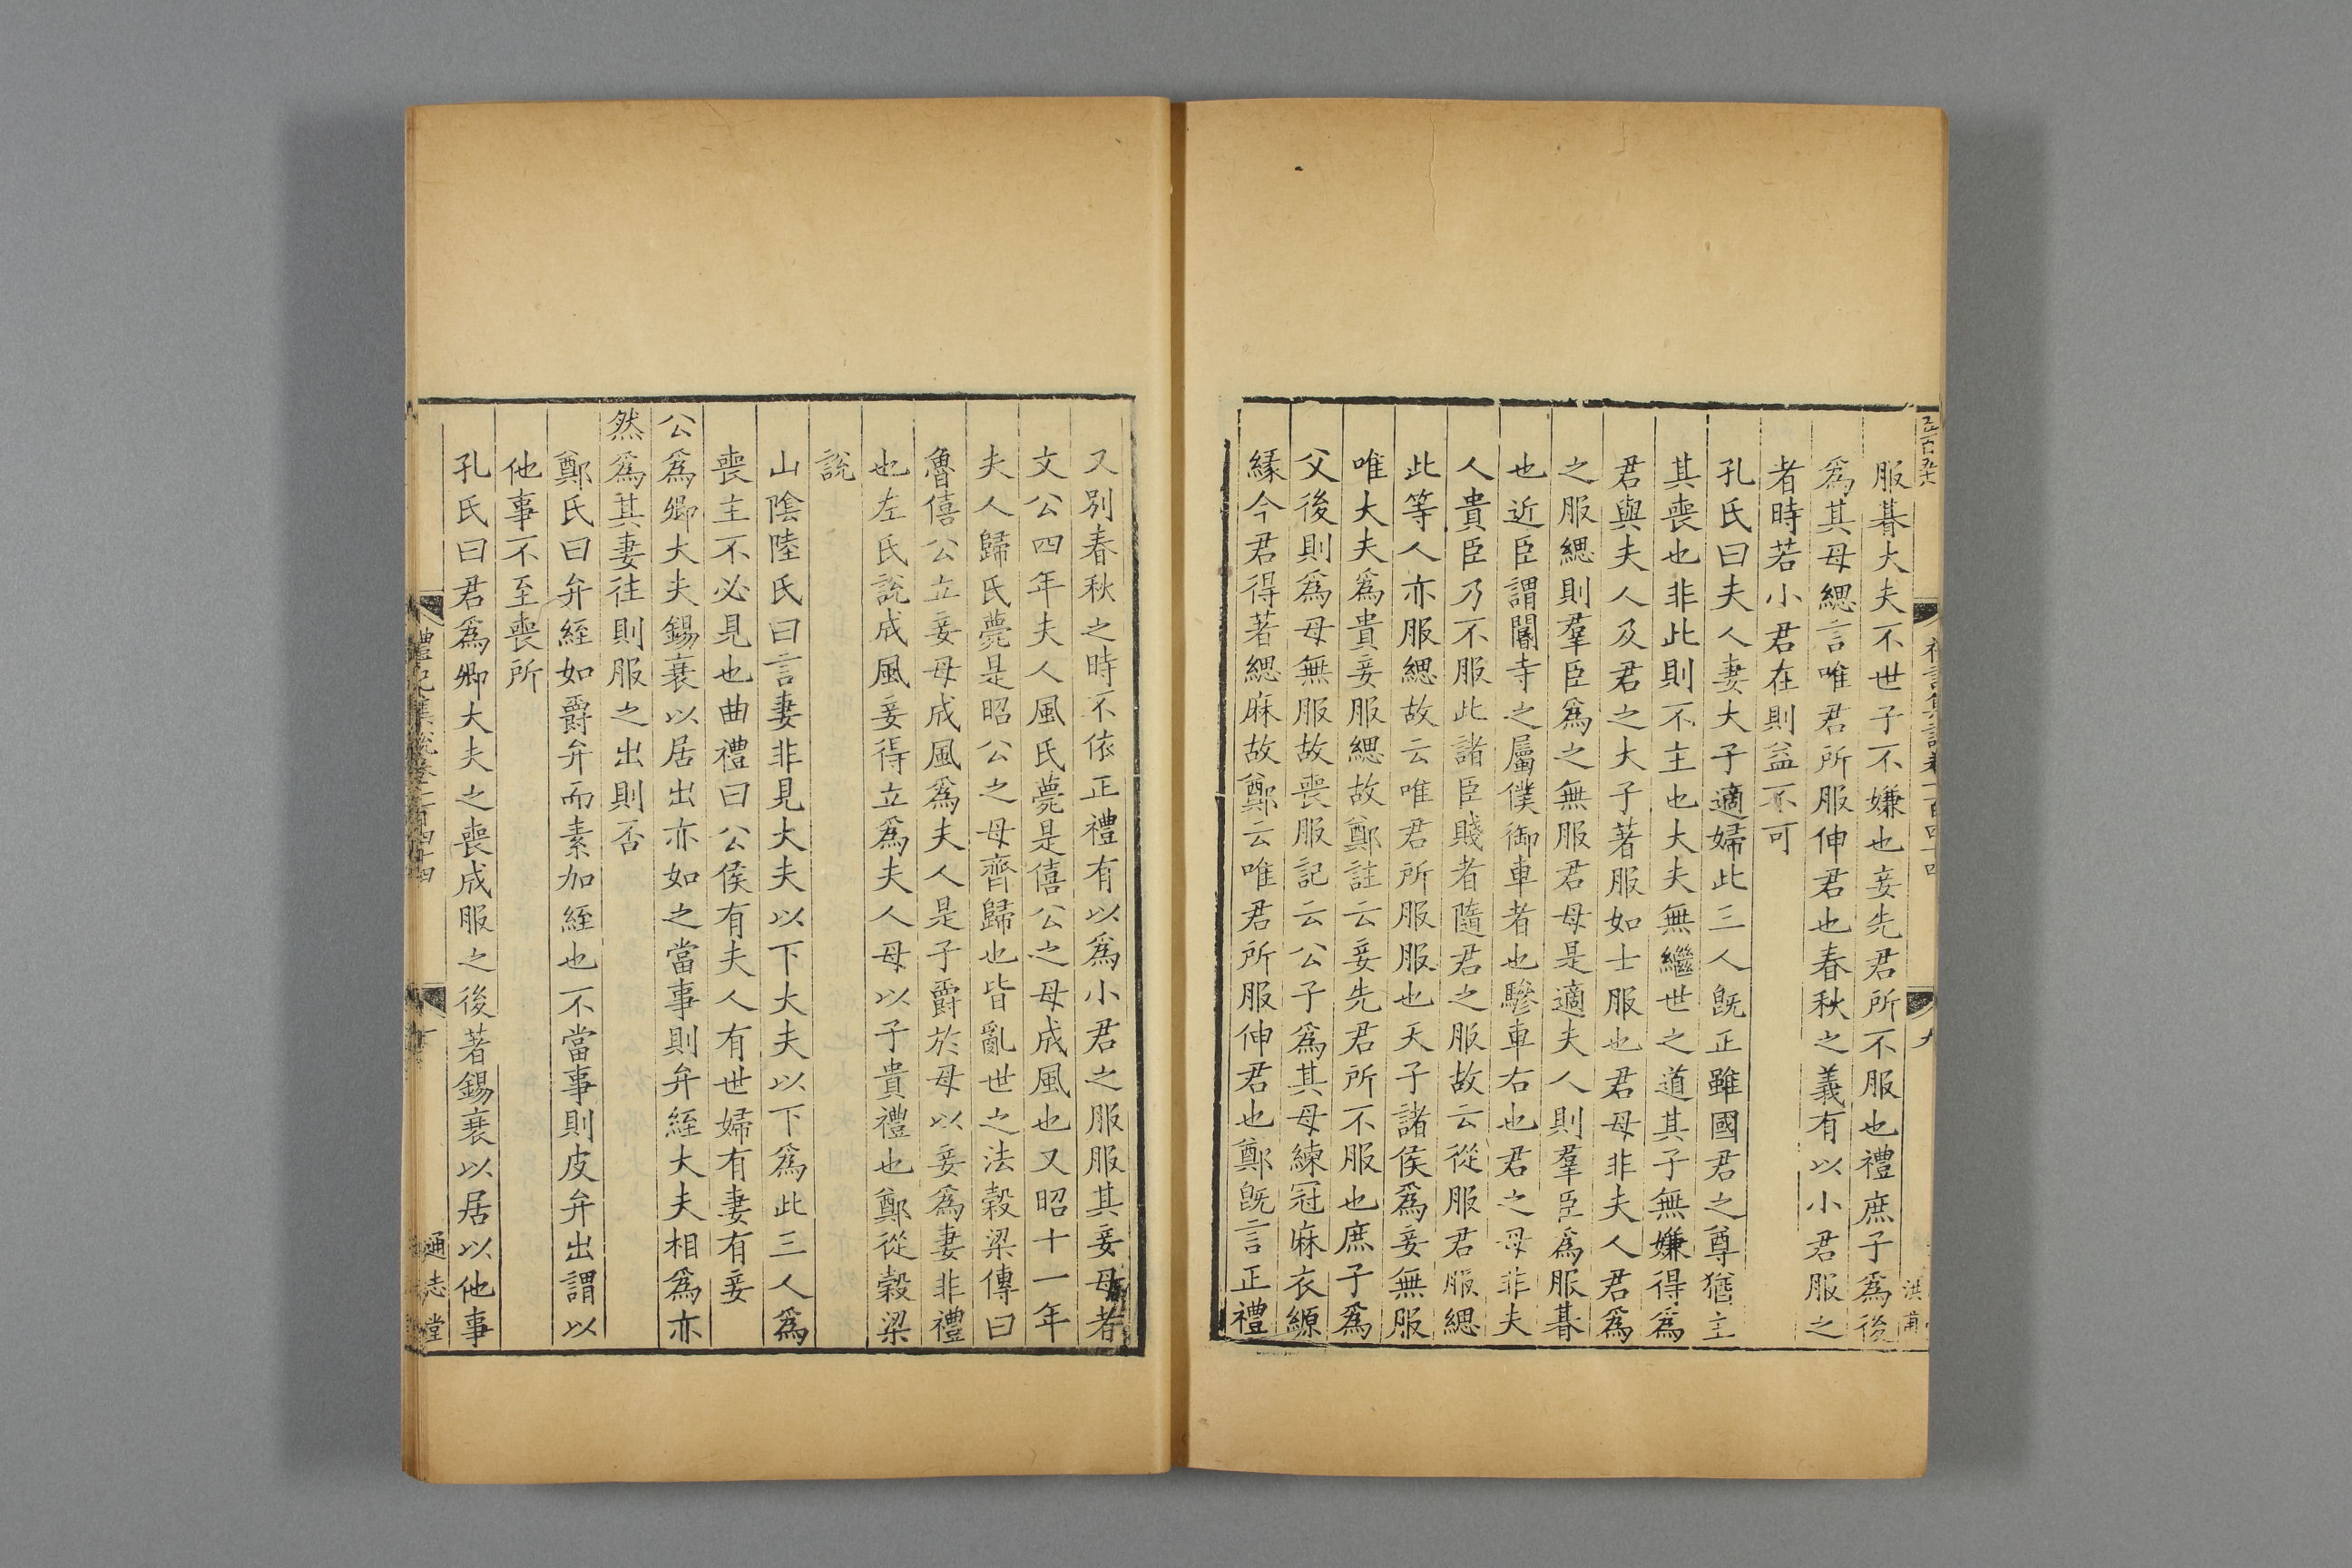 服朞大夫不世子不嫌也妾先君所不服也禮庶子爲後
爲其母緦言唯君所服伸君也春秋之義有以小君服之
者時若小君在則益不可
孔氏曰夫人妻大子適婦此三人旣正雖國君之尊猶主
其喪也非此則不主也大夫無繼世之道其子無嫌得爲
君與夫人及君之大子著服如士服也君母非夫人君爲
之服緦則羣臣爲之無服君母是適夫人則羣臣爲服朞
也近臣謂閽寺之屬僕御車者也驂車右也君之母非夫
人貴臣乃不服此諸臣賤者隨君之服故云從服君服緦
此等人亦服緦故云唯君所服服也天子諸侯爲妾無服
唯大夫爲貴妾服緦故鄭註云妾先君所不服也庶子爲
父後則爲母無服故喪服記云公子爲其母練冠麻衣縓
緣今君得著緦麻故鄭云唯君所服伸君也鄭旣言正禮
又別春秋之時不依正禮有以爲小君之服服其妾母者
文公四年夫人風氏薨是僖公之母成風也又昭十一年
夫人歸氏薨是昭公之母齊歸也皆亂世之法穀梁傳曰
魯僖公立妾母成風爲夫人是子爵於母以妾爲妻非禮
也左氏說成風妾得立爲夫人母以子貴禮也鄭從穀梁
說
山陰陸氏曰言妻非見大夫以下大夫以下爲此三人爲
喪主不必見也曲禮曰公侯有夫人有世婦有妻有妾
公爲卿大夫錫衰以居出亦如之當事則弁絰大夫相爲亦
然爲其妻往則服之出則否
鄭氏曰弁絰如爵弁而素加絰也不當事則皮弁出謂以
他事不至喪所
孔氏曰君爲卿大夫之喪成服之後著錫衰以居以他事
禮記集說卷一百四十四
十
通志堂